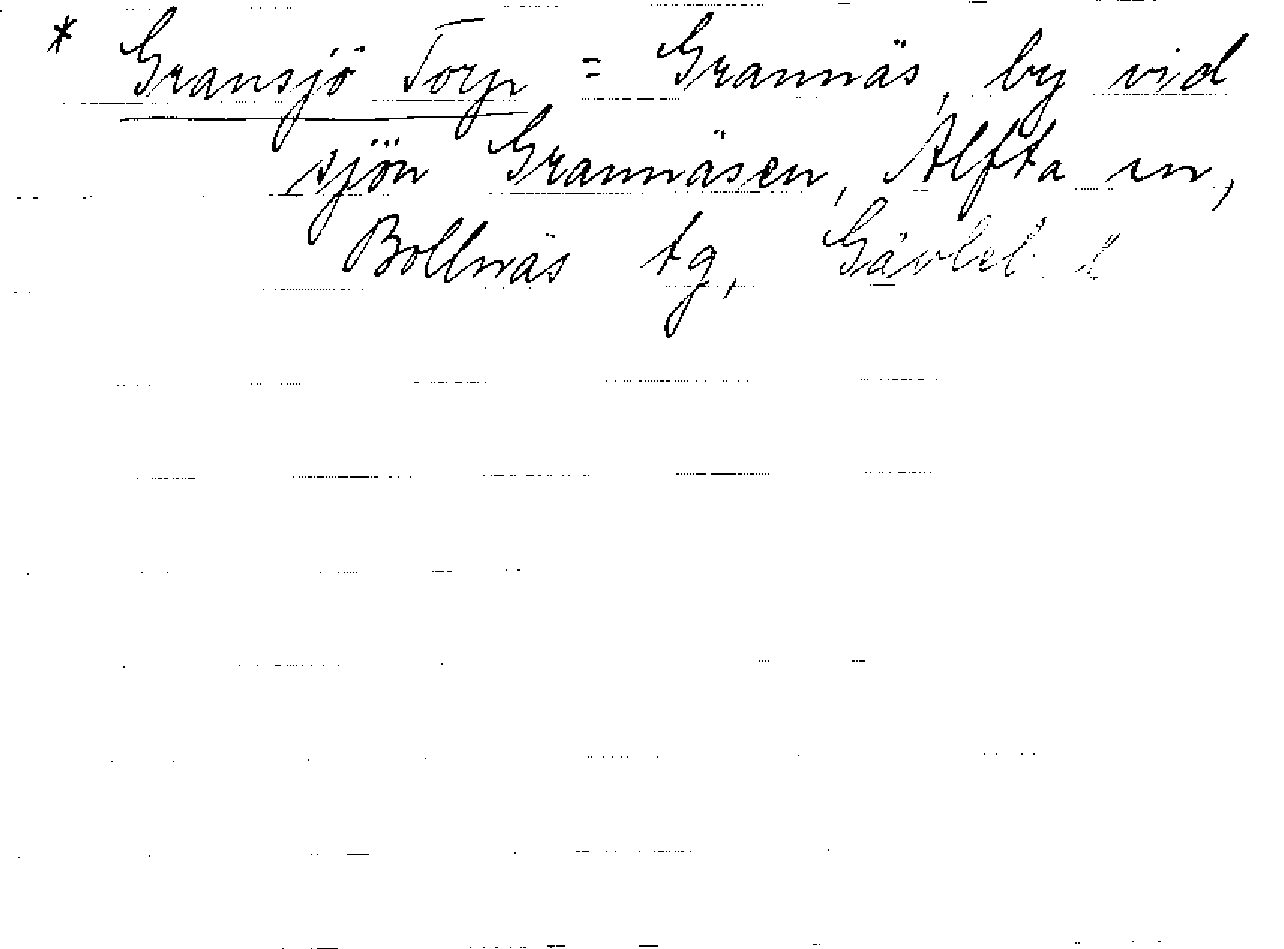 * Gransjö Torp = Grannäs, by vid
sjön Grannäsen, Alfta sn,
Bollnäs tg, Gävleb. l